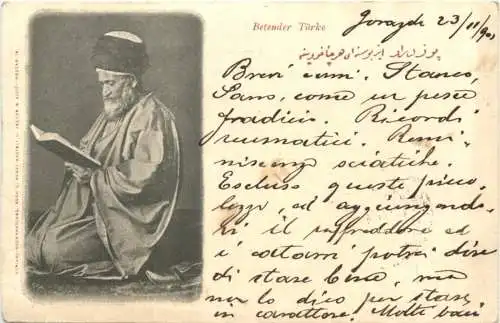 Betender Türke
Gorazde 23/11/900
Brevi cenni. Stanco,
Sano, come un pesce
fradicio. Ricordi
reumatici. Remi-
niscenze sciatiche.
Escluso queste picco-
lezze, ed aggiungendo-
vi il raffreddore ed
i catarri potrei dire
di stare bene, ma
non lo dico per stare
in carattere. Molti baci